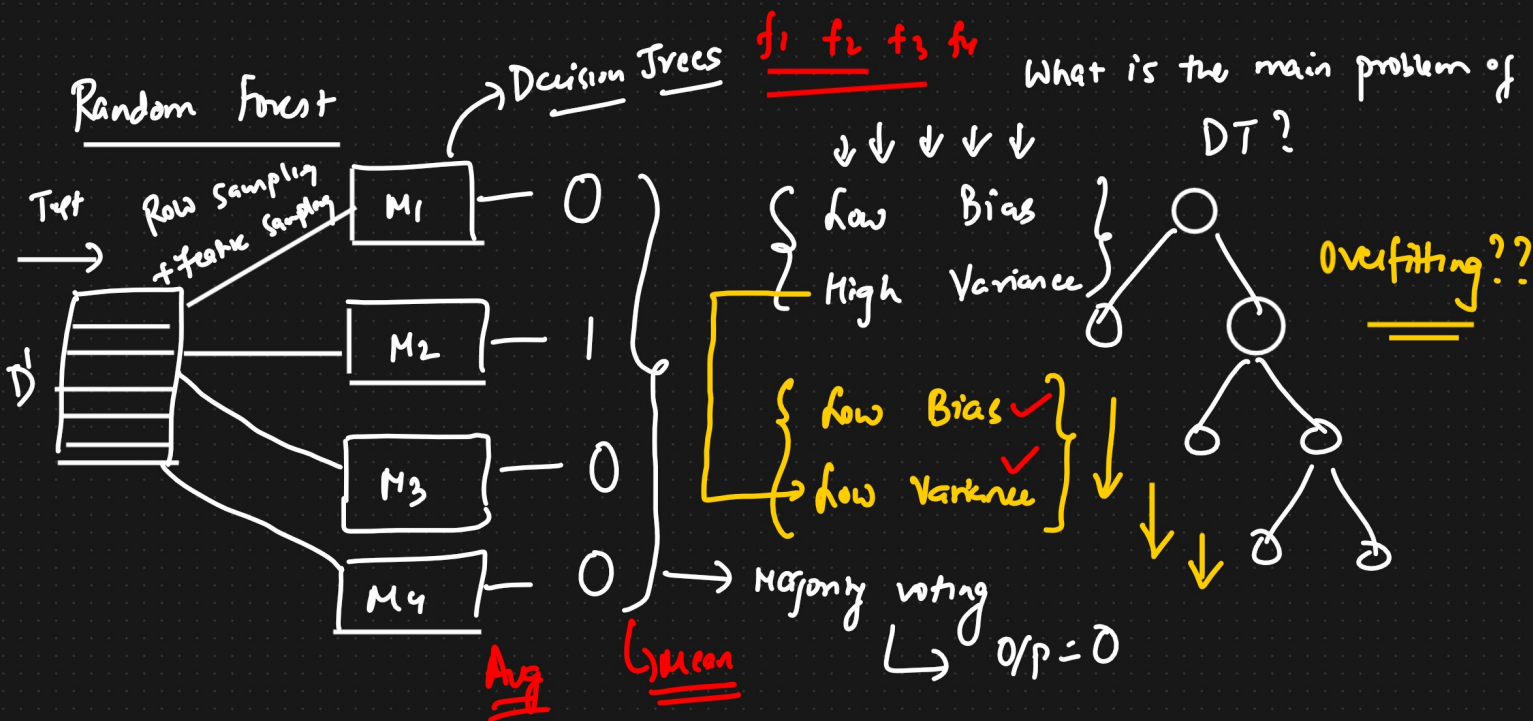 Random Forest
Decision Trees
f1 f2 f3 f4
What is the main problem of
DT?
Row Sampling
+ Feature Sampling
D'
M1 0
M2 1
M3 0
M4 0
Low Bias
High Variance
Overfitting??
Low Bias
Low Variance
Majority voting
O/p = 0
Avg
Mean